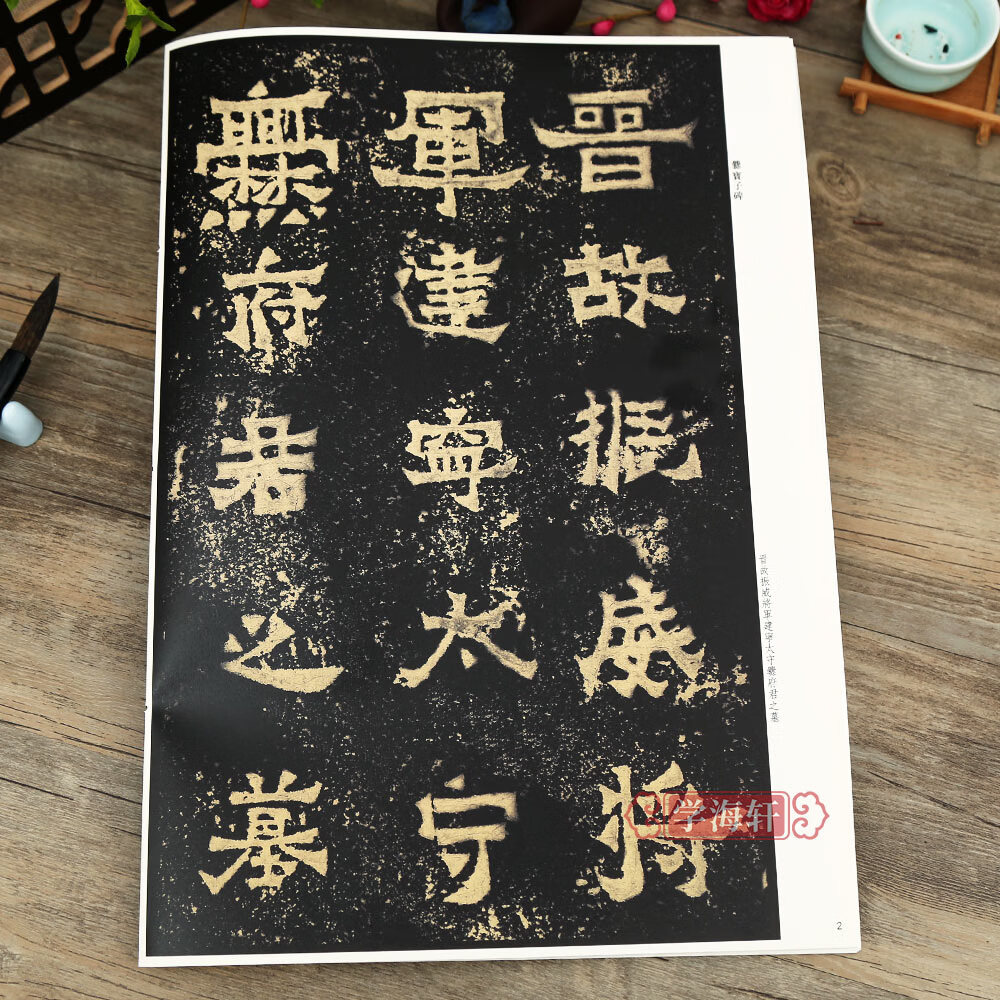 晉故振威將
軍建寧太守
爨府君之墓
爨寶子碑
晋故振威將軍建寧太守爨府君之墓
学海轩
2